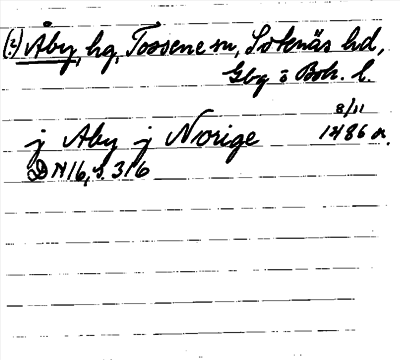 (?) Åby, hg, Tossene sn, Sotenäs hd,
Gbg o Boh. l.
8/11
j Aby j Norige 1486 a.
DN 16, s. 316